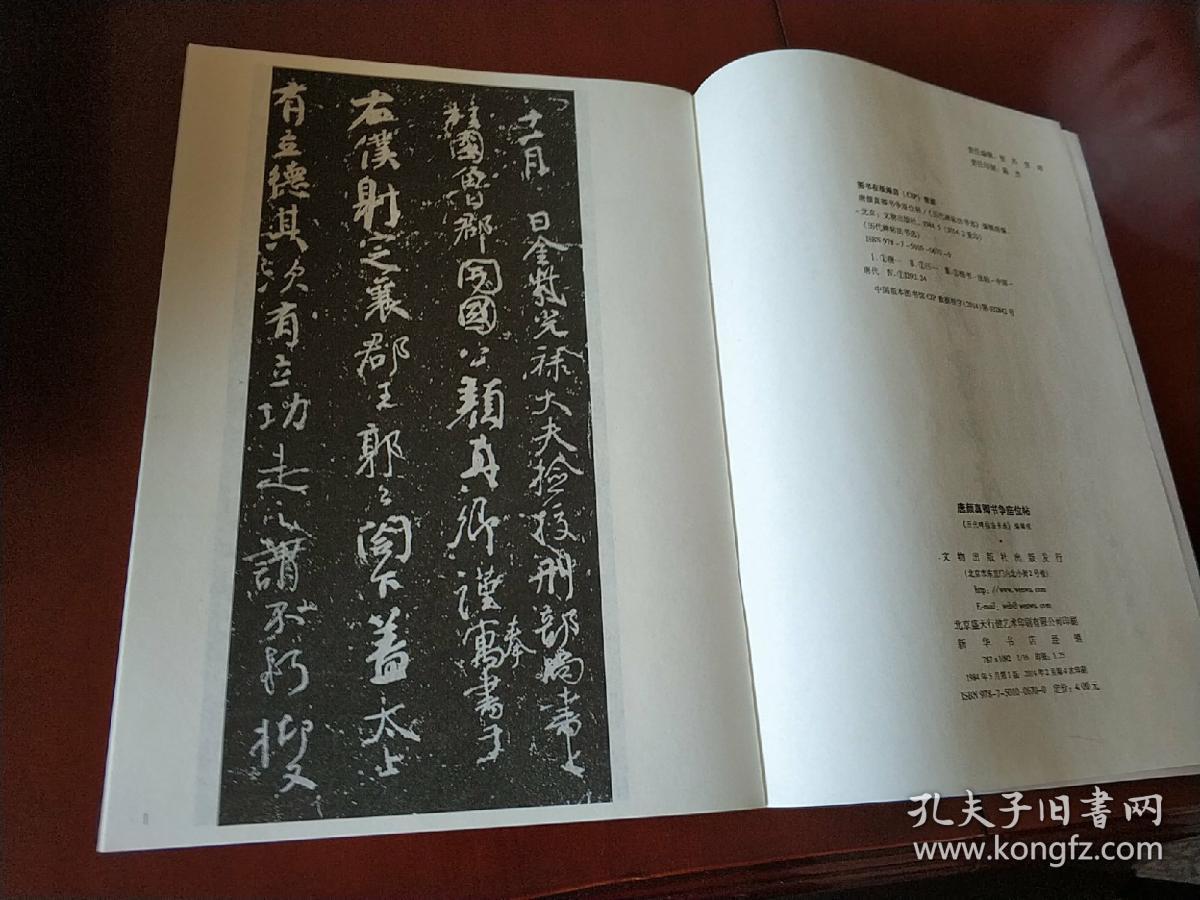 十一月 日金紫光祿大夫檢校刑部尚書上
柱國魯郡開國公顏真卿謹奉寓書于
右僕射定襄郡王郭公閣下蓋太上
有立德其次有立功是之謂不朽抑又
8
图书在版编目(CIP)数据
唐颜真卿书争座位帖/《历代碑帖法书选》编辑组编.
-北京:文物出版社,1984.5(2014.2重印)
(历代碑帖法书选)
ISBN 978-7-5010-0670-0
中国版本图书馆CIP数据核字(2014)第022842号
唐颜真卿书争座位帖
《历代碑帖法书选》编辑组
文物出版社出版发行
(北京市东直门内北小街2号楼)
http://www.wenwu.com
E-mail:web@wenwu.com
北京盛天行健艺术印刷有限公司印刷
新华书店经销
787×1092 1/16 印张:1.25
1984年5月第1版 2014年2月第4次印刷
ISBN 978-7-5010-0670-0 定价:4.00元
孔夫子旧书网
www.kongfz.com